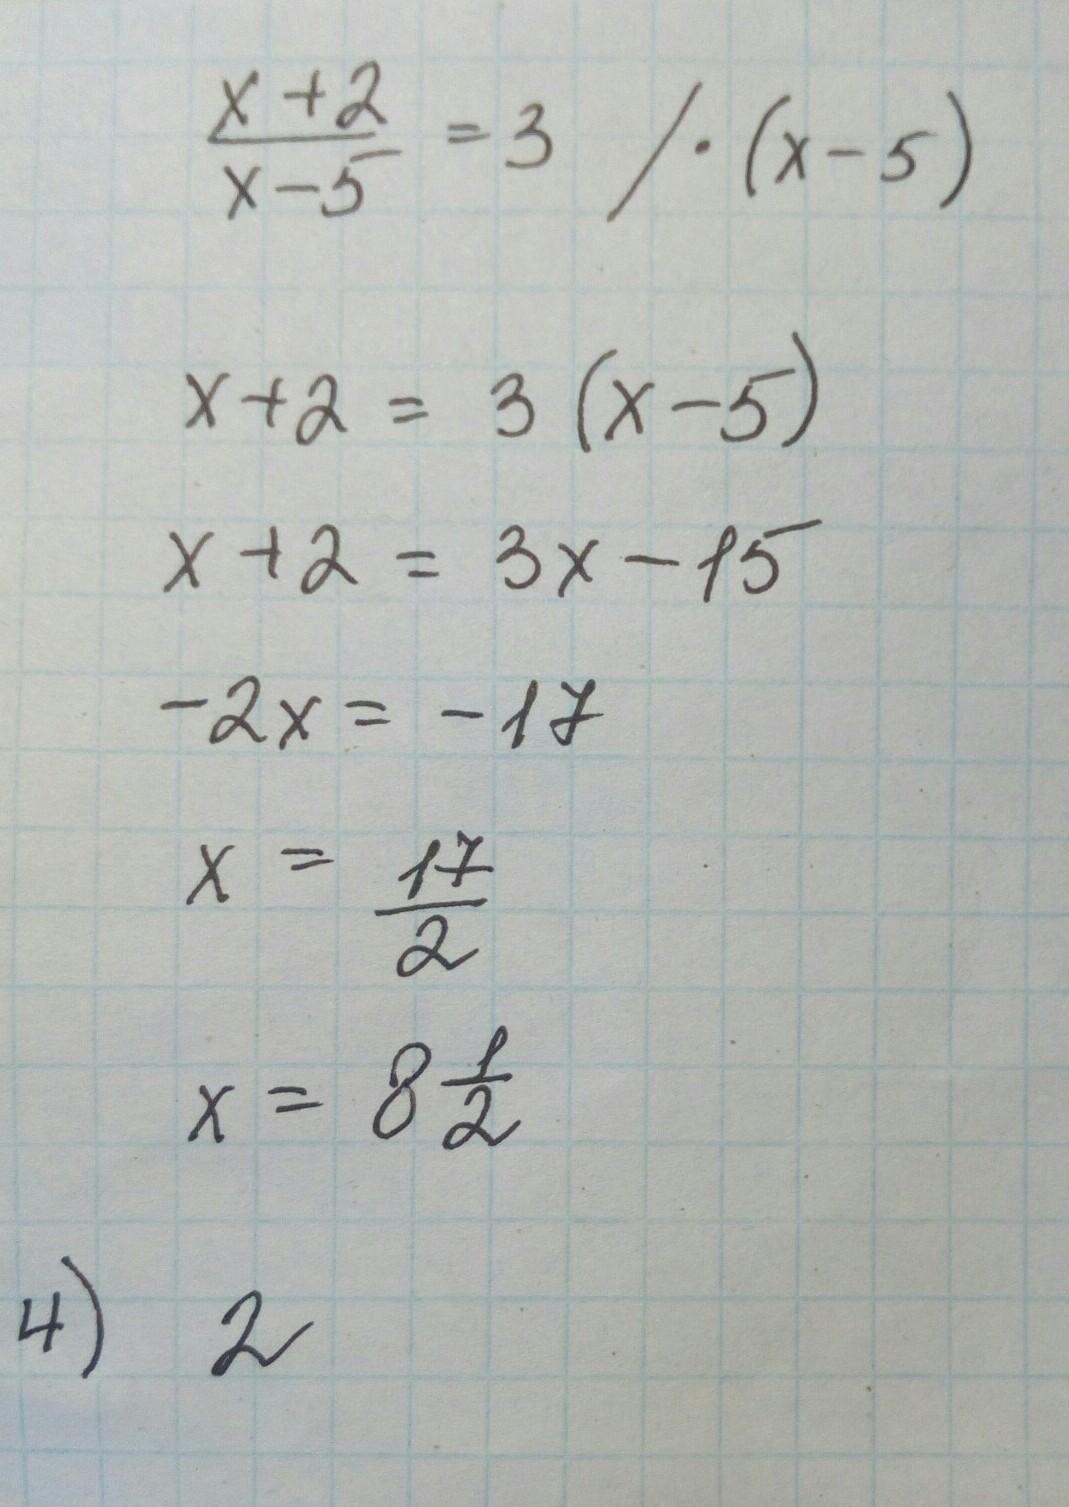 x+2/x-5 = 3 / · (x-5)
x+2 = 3 (x-5)
x+2 = 3x-15
-2x = -17
x = 17/2
x = 8 1/2
4) 2